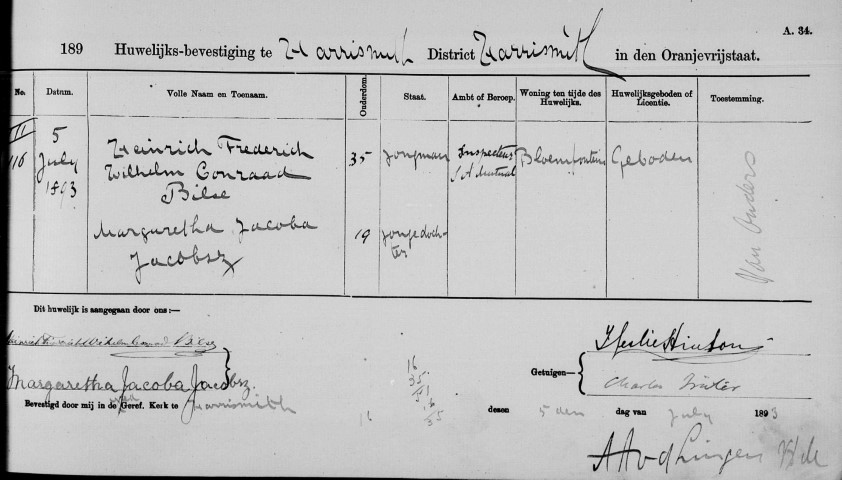 A. 34.
189 Huwelijks-bevestiging te Harrismith District Harrismith in den Oranjevrijstaat.
No. Datum. Volle Naam en Toenaam. Ouderdom. Staat. Ambt of Beroep. Woning ten tijde des Huwelijks. Huwelijksgeboden of Licentie. Toestemming.
III 116 5 July 1893
Heinrich Frederich 35 jongman Inspecteur Bloemfontein Geboden Van Ouders
Wilhelm Conraad S A Mutual
Bilse
Margaretha Jacoba 19 jongedoch-
Jacobsz ter
Dit huwelijk is aangegaan door ons:—
Margaretha Jacoba Jacobsz.
Getuigen—
Charles
Bevestigd door mij in de Ned Geref. Kerk te Harrismith 16 dezen 5 den dag van July 1893
16
35
51
16
35